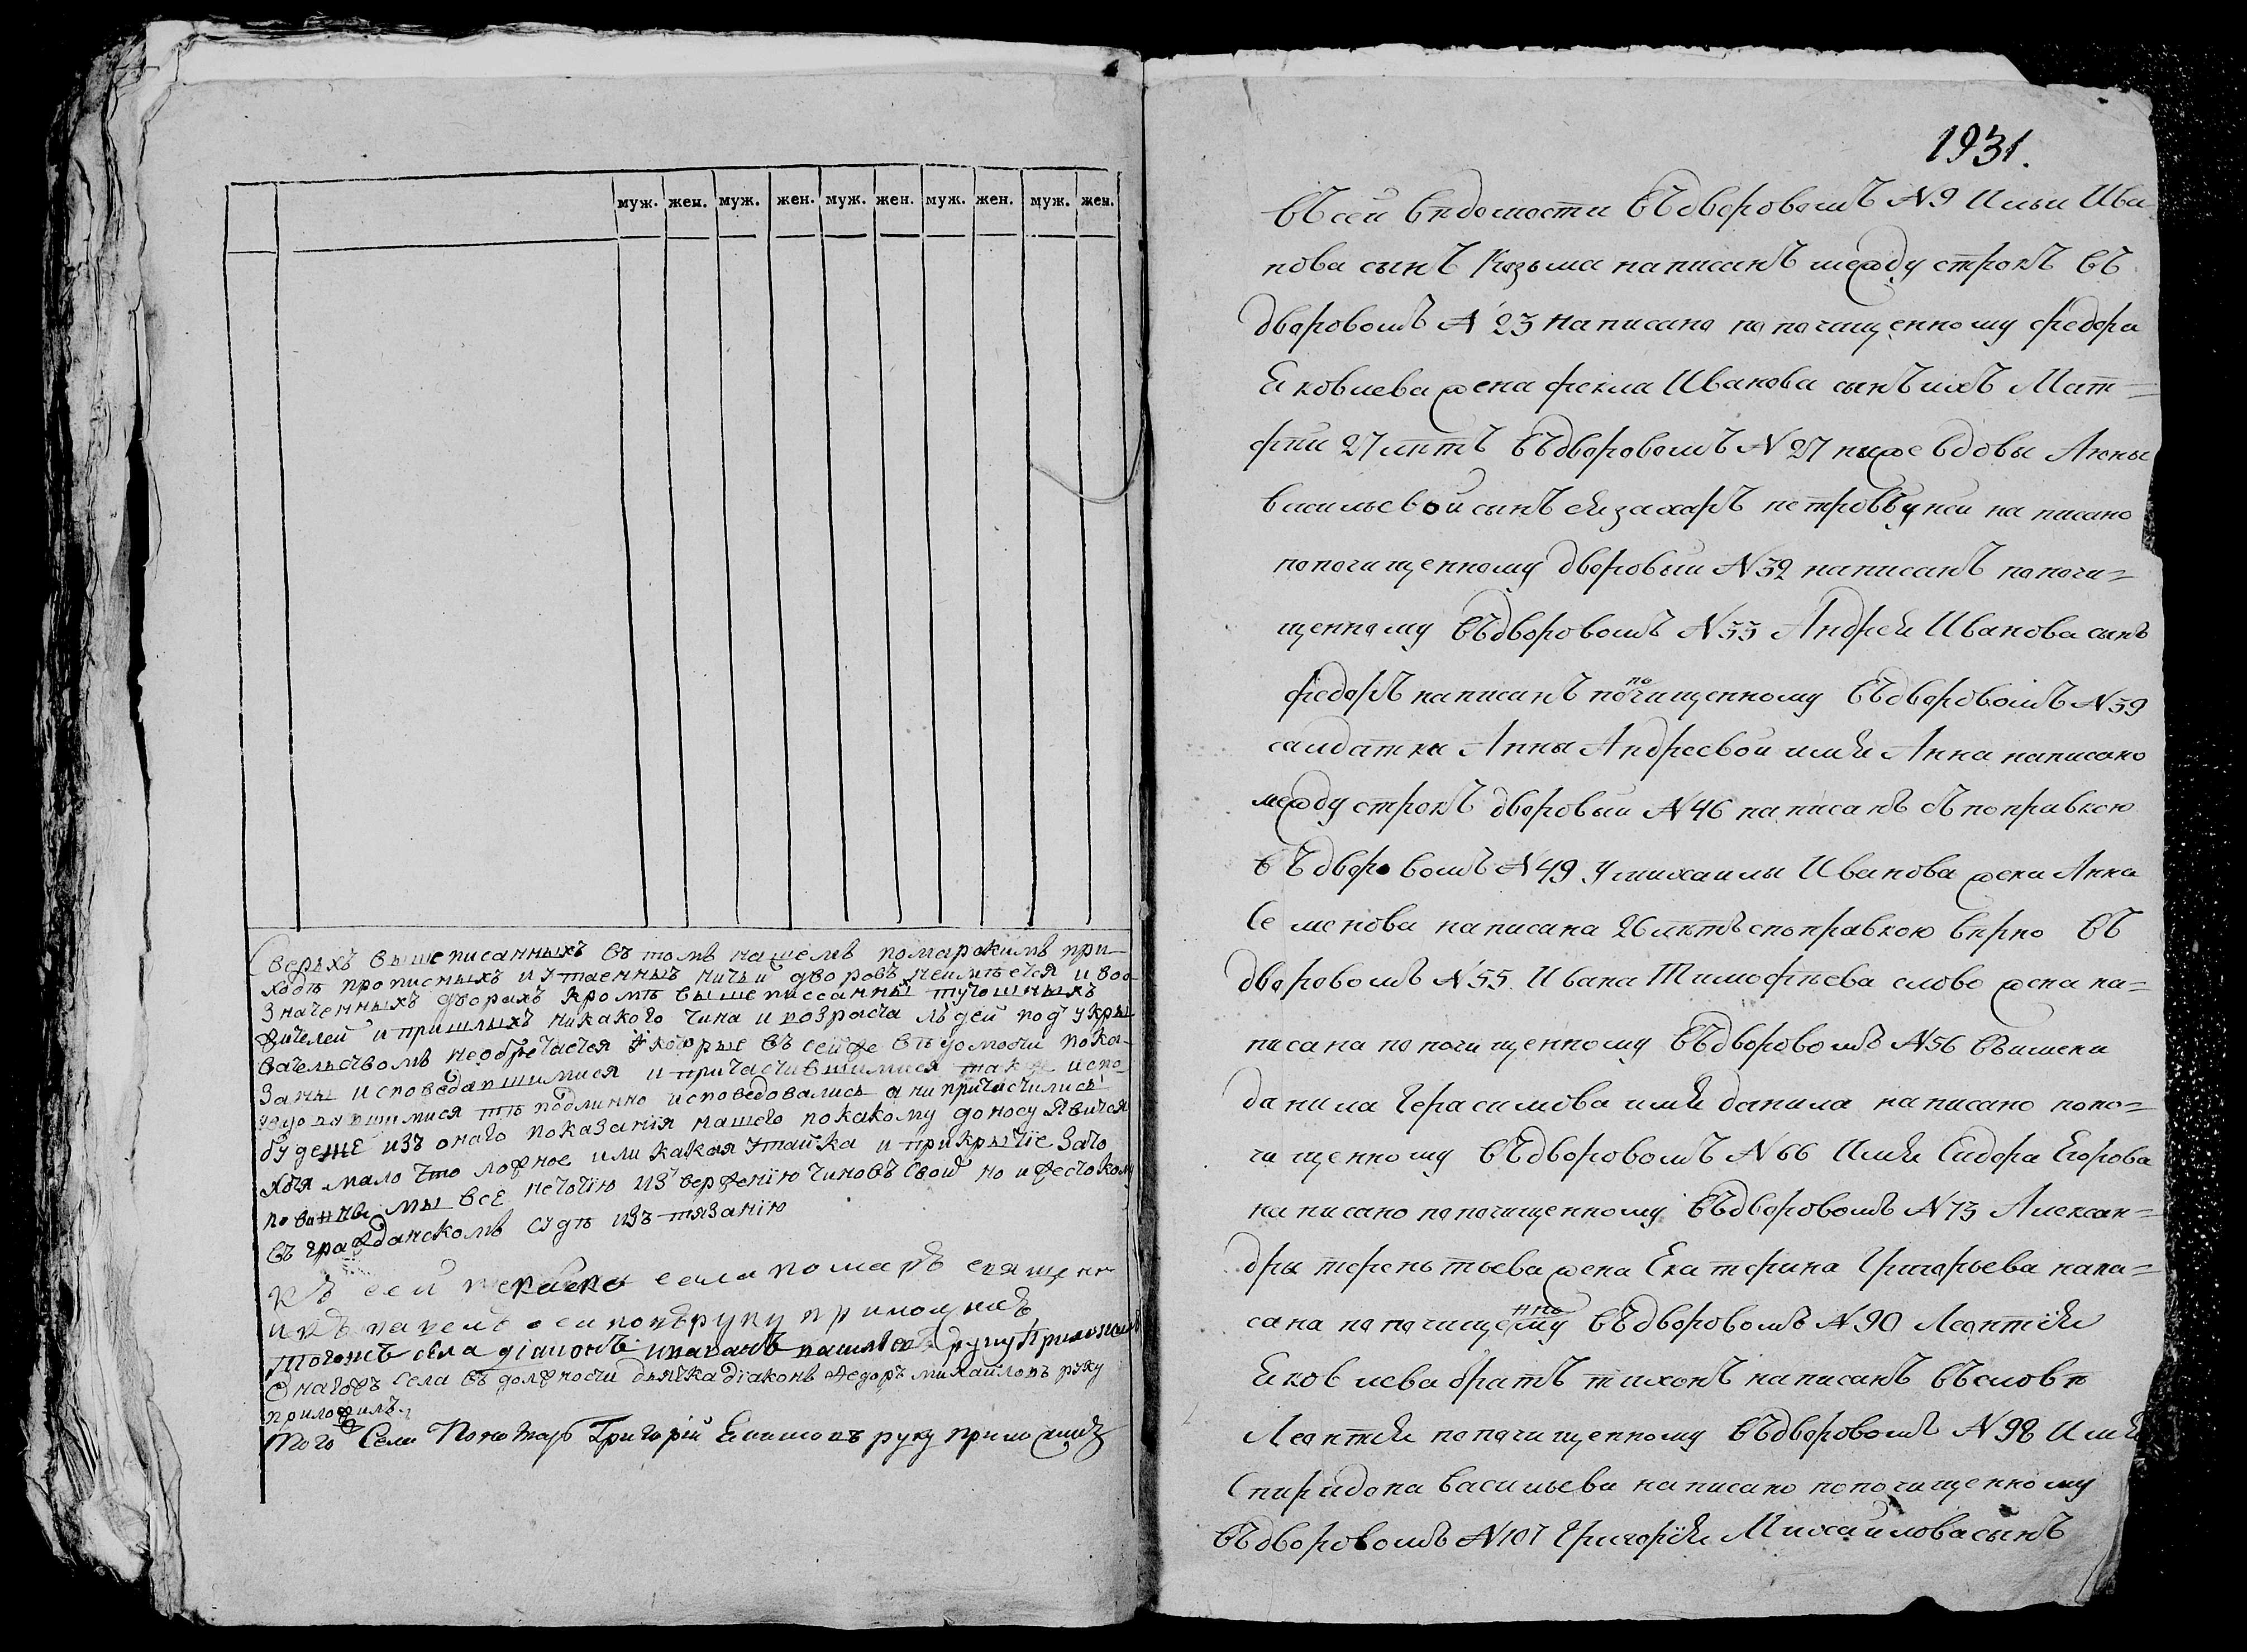 муж. жен. муж. жен. муж. жен. муж. жен. муж. жен.
Сверхъ вышеписанныхъ въ томъ нашемъ помарскимъ при-
ходѣ прописныхъ и утаенныхъ ничьи дворовъ неимѣется и воо-
значенныхъ дворахъ кромѣ вышеписанныхъ тутошныхъ
жителей и пришлыхъ никакого чина и возраста людей под укры-
вательствомъ необретается которые въ сейже вѣдомости пока-
заны исповедавшимися и причастившимися также испо-
ведавшимися тѣ подлинно исповедовались а ни причастились
будеже изъ онаго показанія нашего покакому доносу явится
хотя мало что ложное или какая утайка и прикрытіе зато
повинны мы все неточїю изверженїю чиновъ своихъ но и жестокому
въ гражданскомъ судѣ изтязанїю
къ сей села помаръ священ
руку приложилъ
тогожъ села діаконъ руку приложилъ
Онагожъ села въ должности дьячка діаконъ Федоръ михайловъ руку
приложилъ
того Села Пономарь Григорій руку приложилъ
1931.
въсей вѣдомости въдворовомъ №9 Ильи Ива
нова сынъ Козьма написанъ между строкъ въ
дворовомъ № 23 написано попочищенному федора
Яковлева жена фекла Иванова сынъ ихъ Мат=
фѣй 27 лѣтъ въдворовомъ №27 ниже вдовы Анны
васильевой сынъ ея захаръ петровъ у неи написано
попочищенному дворовый №32 написанъ попочи=
щенному въдворовомъ №33 Андрея Иванова сынъ
федоръ написанъ попочищенному въдворовомъ №39
салдатка Анны Андреевой имя Анна написано
между строкъ дворовый №46 написанъ съ поправкою
въдворовомъ №49 у михаилы Иванова жена Анна
Семенова написана 26 лѣтъ споправкою вѣрно въ
дворовомъ №55 Ивана Тимофѣева слово жена на=
писана попочищенному въдворовомъ №56 въимени
данила Герасимова имя данила написано попо=
чищенному въдворовомъ №66 Имя Сидора Егорова
написано попочищенному въдворовомъ №73 Алексан=
дры терентьева жена Екатерина Григорьева напи=
сана попочищенному въдворовомъ №90 Леонтія
Яковлева братъ тихонъ написанъ въсловѣ
Леонтія попочищенному въдворовомъ №98 Имя
Спиридона васильева написано попочищенному
въдворовомъ №107 Григорія Михаиловасынъ